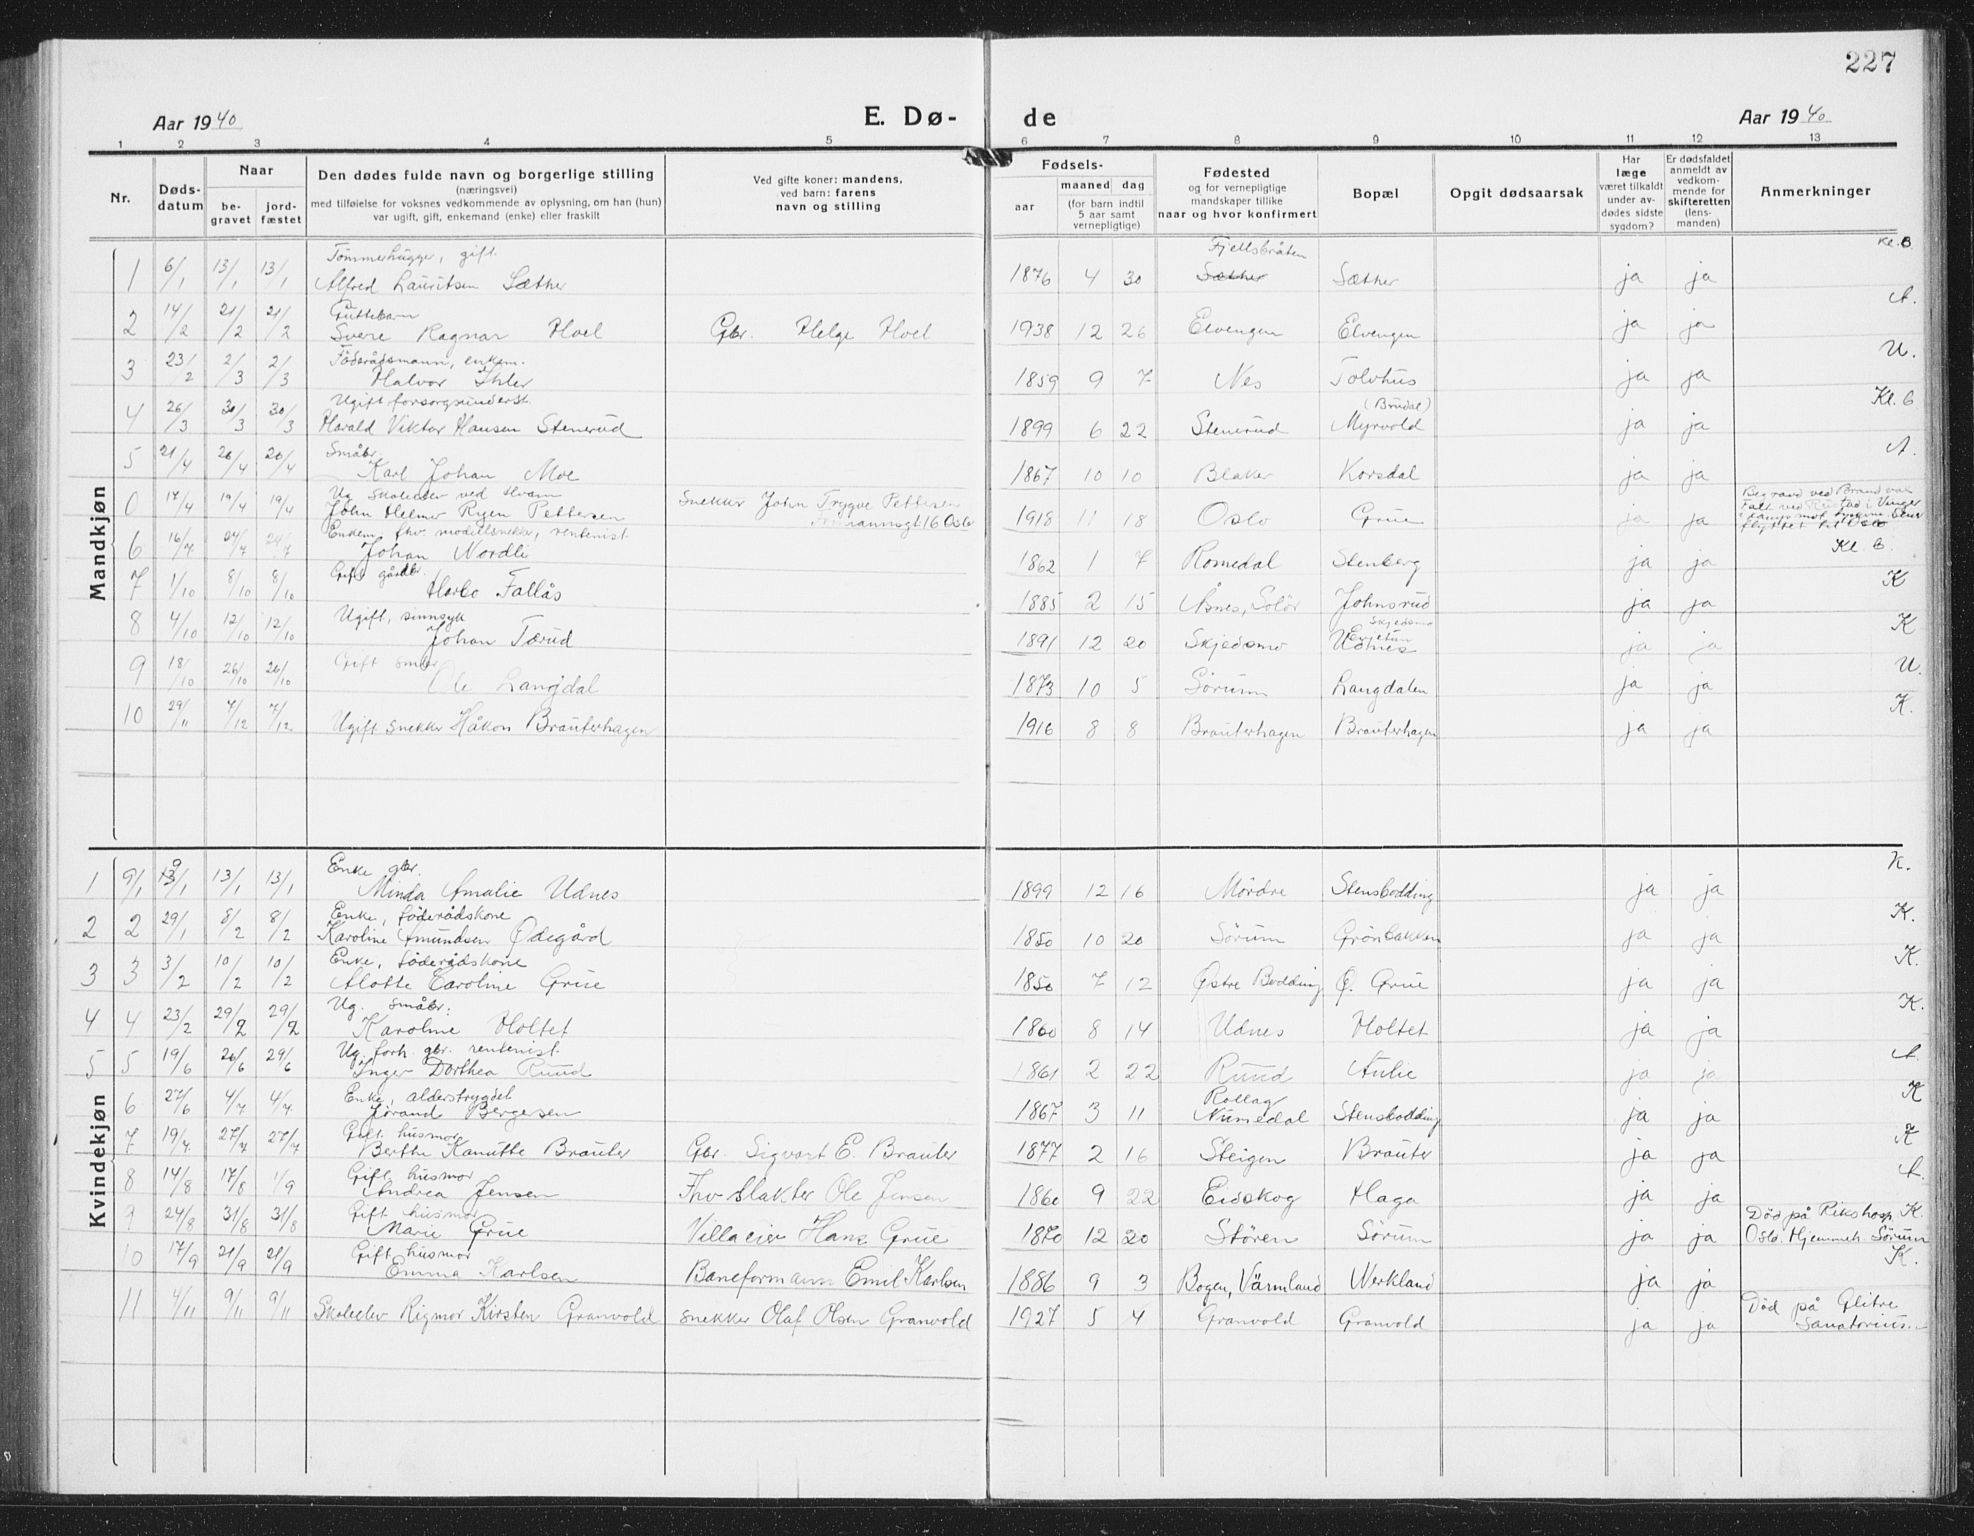 227
Aar 1940 E. Dø- de Aar 1940
1 2 3 4 5 6 7 8 9 10 11 12 13
Nr.
Døds-
datum
Naar
be-
gravet
jord-
fæstet
Den dødes fulde navn og borgerlige stilling
(næringsvei)
med tilføielse for voksnes vedkommende av oplysning, om han (hun)
var ugift, gift, enkemand (enke) eller fraskilt
Ved gifte koner: mandens,
ved barn: farens
navn og stilling
Fødsels-
aar
maaned dag
(for barn indtil
5 aar samt
vernepligtige)
Fødested
og for vernepligtige
mandskaper tillike
naar og hvor konfirmert
Bopæl
Opgit dødsaarsak
Har
læge
været tilkaldt
under av-
dødes sidste
sygdom?
Er dødsfaldet
anmeldt av
vedkom-
mende for
skifteretten
(lens-
manden)
Anmerkninger
Mandkjøn
Tømmerhugger, gift. Fjellsbråten Kl. B
1 6/1 13/1 13/1 Alfred Lauritsen Sæther 1876 4 30 Sæther Sæther ja ja
Guttebarn A.
2 14/2 21/2 21/2 Svere Ragnar Hoel Gbr. Helge Hoel 1938 12 26 Elvengen Elvengen ja ja
Føderådsmann, enkem. U.
3 23/2 2/3 2/3 Halvor Ihler 1859 9 7 Nes Tolvhus ja ja
Ugift forsorgsunderst. (Brudal) Kl. B
4 26/3 30/3 30/3 Harald Viktor Hansen Stenerud 1899 6 22 Stenerud Myrvold ja ja
Småbr. A.
5 21/4 26/4 26/4 Karl Johan Moe 1867 10 10 Blaker Korsdal ja ja
Ug. skoleelev ved Hvam Snekker John Trygve Pettersen
0 17/4 19/4 19/4 John Helmer Ryen Pettersen 16 Oslo 1918 11 18 Oslo Grue ja ja
Begravd ved Brandval
Falt ved Rustad i Vinger
i kamp mot tyskerne. Senere
flyttet til Oslo
Enkem. fhv. modellsnekker, rentenist Kl. B.
6 16/7 24/7 24/7 Johan Nordli 1862 1 7 Romedal Stenberg ja ja
Gift gårdbr. K
7 1/10 8/10 8/10 Harbo Fallås 1885 2 15 Åsnes, Solør Johnsrud ja ja
Ugift, sinnsyk Skjedsmo K
8 4/10 12/10 12/10 Johan Tærud 1891 12 20 Skjedsmo Udnes ja ja
Gift småbr U.
9 18/10 26/10 26/10 Ole Langdal 1873 10 5 Sørum Langdalen ja ja
K.
10 29/11 7/12 7/12 Ugift snekker Håkon Brauterhagen 1916 8 8 Brauterhagen Brauterhagen ja ja
Kvindekjøn
Enke gbr. K.
1 9/1 13/1 13/1 Minda Amalie Udnes 1899 12 16 Mördre Stensbodding ja ja
Enke, føderådskone K.
2 2 29/1 8/2 8/2 Karoline Amundsen Ødegård 1850 10 20 Sörum Grönbakken ja ja
Enke, føderådskone K.
3 3 3/2 10/2 10/2 Alotte Caroline Grue 1850 7 12 Østre Bodding Ø. Grue ja ja
Ug. småbr. K.
4 4 23/2 29/2 29/2 Karoline Holtet 1860 8 14 Udnes Holtet ja ja
Ug. forh. gbr. rentenist. A.
5 5 19/6 26/6 29/6 Inger Dorthea Ruud 1861 2 22 Ruud Aulie ja ja
Enke, alderstrygdet Rollag K
6 27/6 4/7 4/7 Jørand Bergesen 1867 3 11 Numedal Stensbodding ja ja
Gift husmor K
7 19/7 27/7 27/7 Berthe Kanutte Brauter Gbr. Sigvart E. Brauter 1877 2 16 Steigen Brauter ja ja
Gift husmor A.
8 14/8 17/8 1/9 Andrea Jensen Fhv slakter Ole Jensen 1860 9 22 Eidskog Haga ja ja
Gift husmor Död på Rikshosp. K.
9 24/8 31/8 31/8 Marie Grue Villaeier Hans Grue 1870 12 20 Stören Sørum ja ja Oslo. Hjemmeh. Sørum
Gift husmor K.
10 17/9 21/9 21/9 Emma Karlsen Baneformann Emil Karlsen 1886 9 3 Bogen, Värmland Werkland ja ja
11 4/11 9/11 9/11 Skoleelev Rigmor Kirsten Granvold snekker Olaf Olsen Granvold 1927 5 4 Granvold Granvold ja ja Död på Glitre
Sanatorium